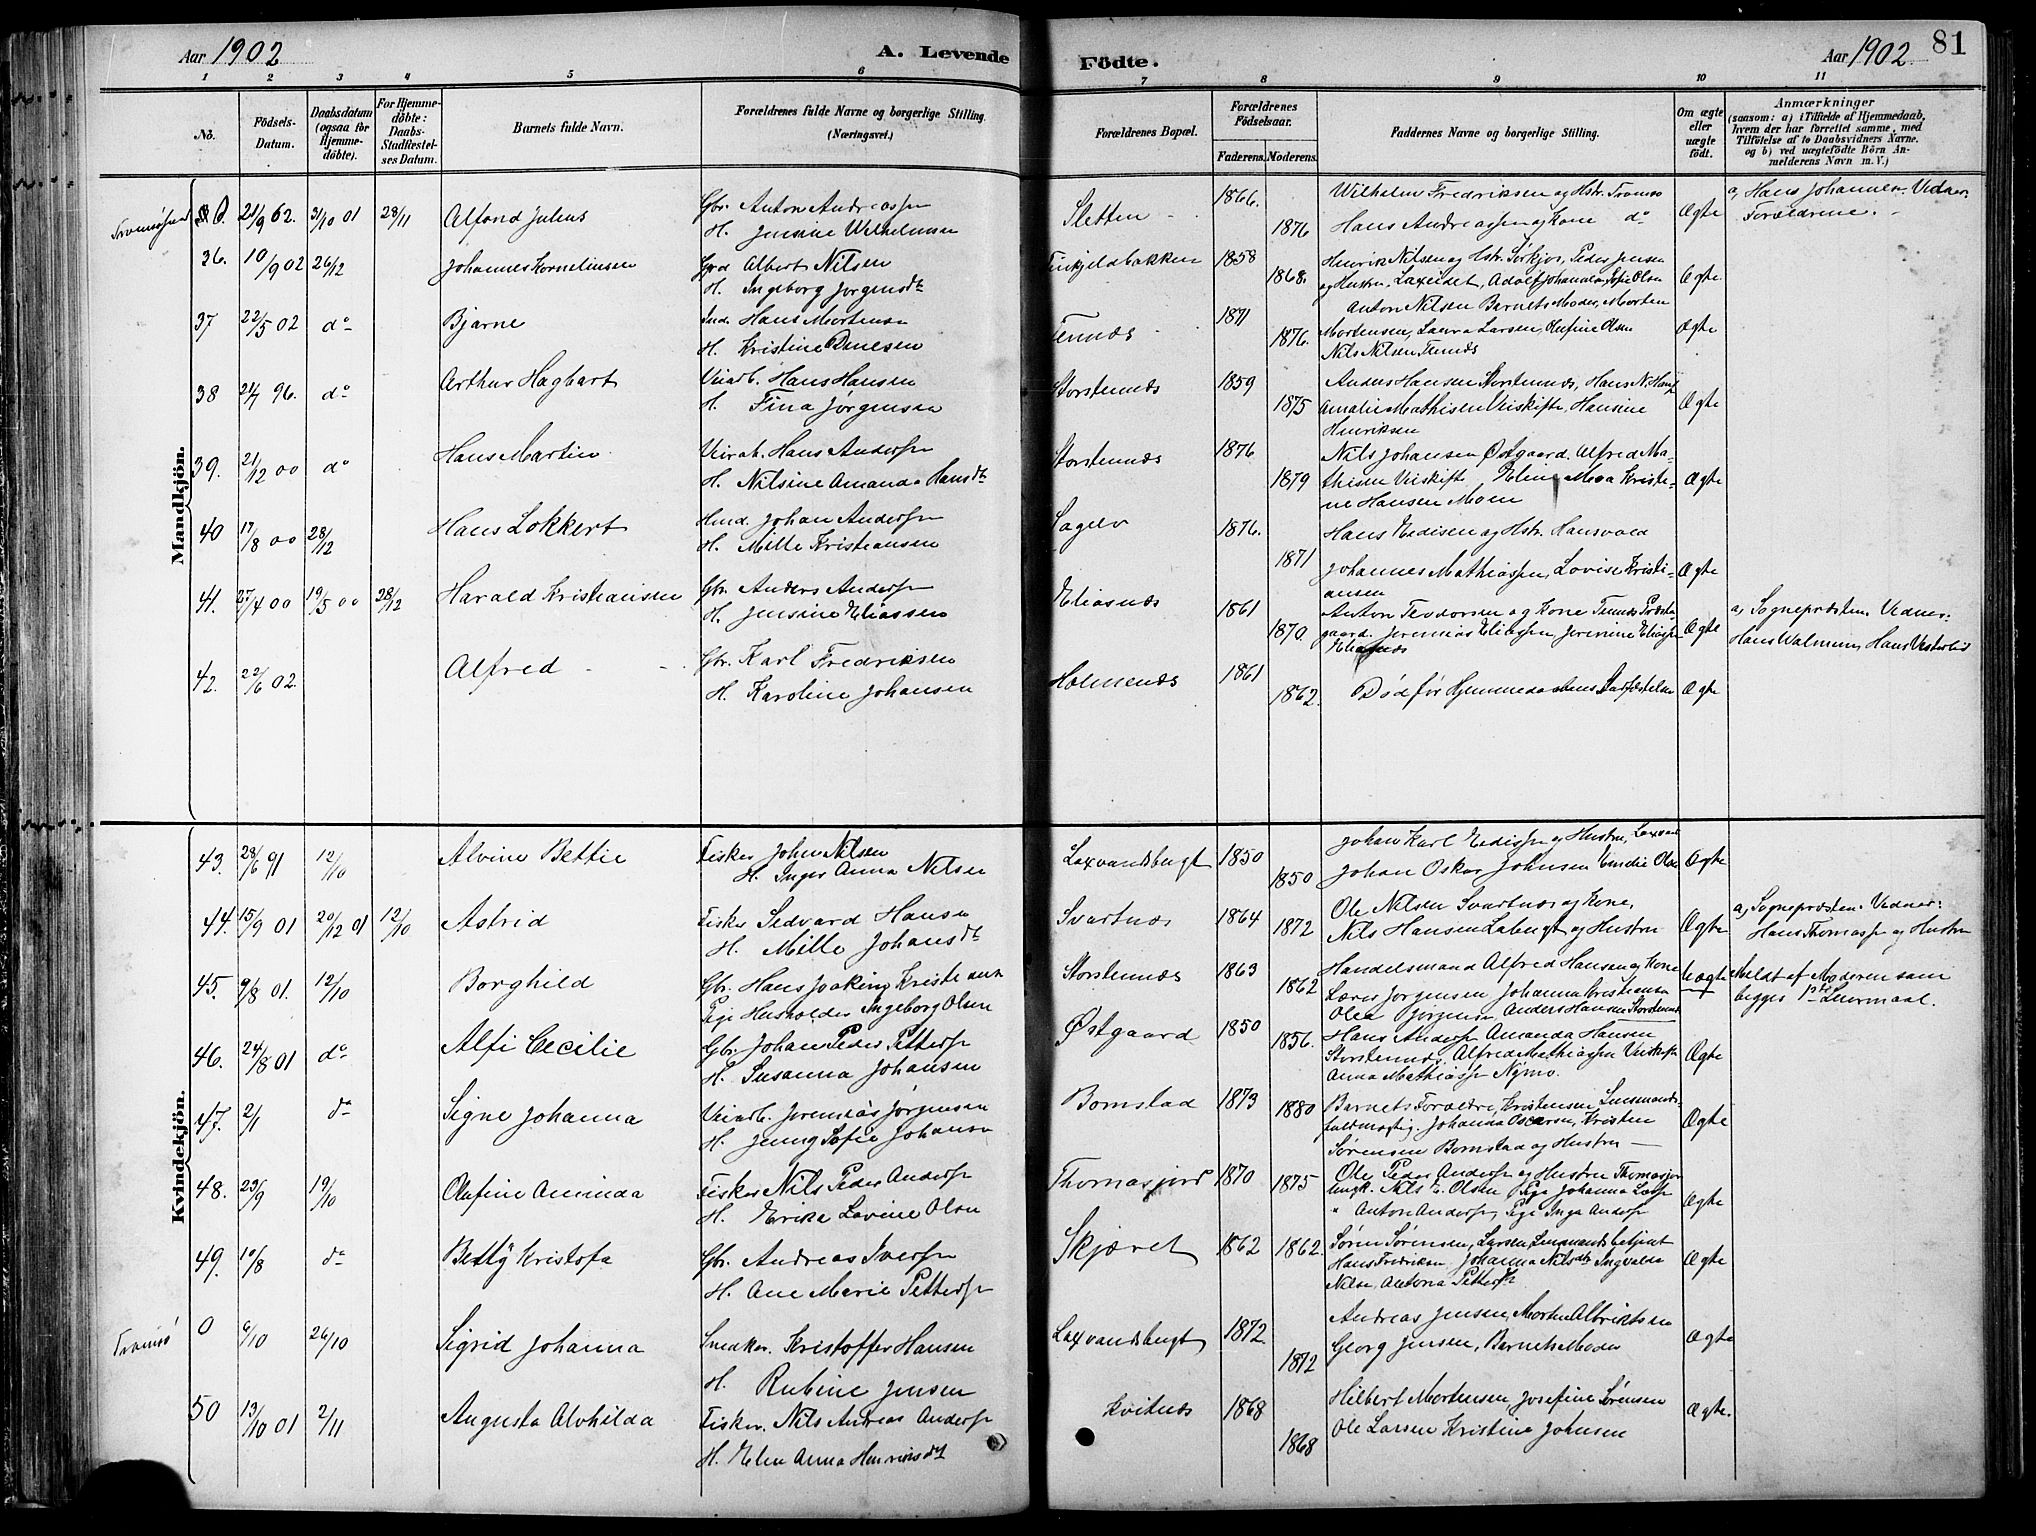 Aar 1902
A. Levende
Födte.
Aar 1902.
81
1 2 3 4 5 6 7 8 9 10 11
No.
Födsels-Datum.
Daabsdatum (ogsaa for Hjemme-döbte).
For Hjemme-döbte: Daabs-Stadfæstel-ses Datum.
Barnets fulde Navn.
Forældrenes fulde Navne og borgerlige Stilling. (Næringsvei.)
Forældrenes Bopæl.
Forældrenes Födselsaar.
Faderens. Moderens.
Faddernes Navne og borgerlige Stilling.
Om ægte eller uægte födt.
Anmærkninger
(saasom: a) i Tilfælde af Hjemmedaab,
hvem der har forrettet samme, med
Tilföielse af to Daabsvidners Navne,
og b) ved uægtefödte Börn An-
melderens Navn m. V.)
Mandkjön.
Alfond Julius
Gbr. Anton Andreassen
H. Jensine Wilhelmsen
Sletten
1866.
1876
Wilhelm Fredriksen og Hstr. Tromsö
Hans Andreassen og Kone do
Ægte
a, Hans Johannesen Vidner
Forældrene.
36. 10/9 02 26/12
Johannes Kornelinsen
Albert Nilsen
H. Ingeborg Jørgensdt
1858
1868.
Henrik Nilsen og Hstr. Sørkjos, Peder Jensen
og Hustru, Laxeidet,
Ægte
37 22/5 02 do
Bjarne
Ind. Hans Mortensen
H. Kristine
Tennæs
1871
1876.
Anton Nilsen Barnets Moder, Morten
Mortensen, Laura Larsen, Olufine Olsen
Nils Nilsen, Tennæs
Ægte
38 21/7 96. do
Arthur Hagbart
Veiarb. Hans Hansen
H. Fina Jørgensen
Storstennæs
1859
1875
Anders Hansen Storstennæs, Hans N. Hansen
Amalie Mathisen Veiskifte, Hansine
Henriksen
Ægte
39. 21/12 00 do
Hans Martin
Veiarb. Hans Andersen
H. Nilsine Amanda Hansdt
Storstennæs
1876
1879
Nils Johansen Østgaard. Alfred Ma-
thisen Veiskifte, Eline Moen Kristi-
ne Hansen Moen
Ægte
40 17/8 00 28/12
Hans Lokkert
Hmd. Johan Andersen
H. Mille Kristiansen
Sagelv
1876.
1871
Hans Edisen og Hstr. Hansvold
Johannes Mathiassen, Lovise Kristi-
ansen
Ægte
41. 27/4 00 19/5 00 28/12
Harald Kristiansen
Gbr. Anders Andersen
H. Jensine Eliassen
Eliasnæs
1861
1870
Anton Teodorsen og Kone Tennes Præste
gaard. Jeremias Eliassen, Jensine Eliassen
Eliasnæs
Ægte
a, Sognepræsten. Vidner:
Hans Walmen, Hans Vesterlid
42. 22/6 02.
Alfred
Gbr. Karl Fredriksen
H. Karoline Johansen
Holmenæs
1861
1862.
Død før Hjemmedaabens Stadfæstelse
Ægte
Kvindekjön.
43. 28/6 91 12/10
Alvine Bettie
Fisker John Nilsen
H. Inger Anna Nilsen
Laxvandsbugt
1850
1850
Johan Karl Edissen og Hustru, Laxvand
Johan Oskar Johnsen Emilie Olsen
Ægte
44. 15/9 01 20/12 01 12/10
Astrid
Fisker Sedvard Hansen
H. Mille Johansdt
Svartnæs
1864
1872
Ole Nilsen Svartnæs og Kone,
Nils Hansen Labugt og Hustru
Ægte
a, Sognepræsten. Vidner:
Hans Thomassen og Hustru
45. 9/8 01. 12/10
Borghild
Gbr. Hans Joakim Kristiansen
Pige Husholder Ingeborg Olsen
Storstennæs
1863
1862
Handelsmand Alfred Hansen og Kone
Lærer Jørgensen Johanna Kristiansen
Oluf Jørgensen, Anders Hansen Storstennæs
Uægte
Meldt af Moderen som
begges 1ste Leiermaal.
46. 24/8 01 do
Alfi Cecilie
Gbr. Johan Peder Pettersen
H. Susanna Johansen
Østgaard
1850
1856.
Hans Andersen Amanda Hansen
Storstennæs, Alfred Mathiassen Veiskifte
Anna Mathiassen Nymo.
Ægte
47. 2/1 do
Signe Johanna
Veiarb. Jeremias Jørgensen
H. Jenny Sofie Johansen
Bomstad
1873
1880
Barnets Forældre, Kristensen Lensmands-
fuldmægtig. Johanna Oscarsen, Kristen
Sørensen Bomstad og Hustru
Ægte
48. 23/9 19/10
Olufine Aminda
Fisker Nils Peder Andersen
H. Erika Lovine Olsen
Thomasjord
1870
1875
Ole Peder Andersen og Hustru Thomasjor
Ungk. Nils E. Olsen Pige Johanna
" Anton Andersen, Pige Inga Andersen
Ægte
49. 10/8 do
Betty Kristofa
Gbr. Andreas Iversen
H. Ane Marie Pettersen
Skjæret
1862
1862.
Søren Sørensen, Larsen Lensmandsbetjent
Hans Fredriksen, Johanna Nilsdtr Ingvalda
Nilsen, Antona Pettersen
Ægte
Tromsö
0 6/10 26/10
Sigrid Johanna
Snedker. Kristoffer Hansen
H. Rubine Jensen
Laxvandsbugt
1872
1872
Andreas Jensen, Morten Albriktsen
Georg Jensen, Barnets Moder
Ægte
50 13/10 01 2/11
Augusta Alvhilda
Fisker. Nils Andreas Andersen
H. Elen Anna Henriksdt
Kvitnæs
1868
1868
Hilbert Mortensen, Josefine Sørensen
Ole Larsen Kristine Johnsen
Ægte.